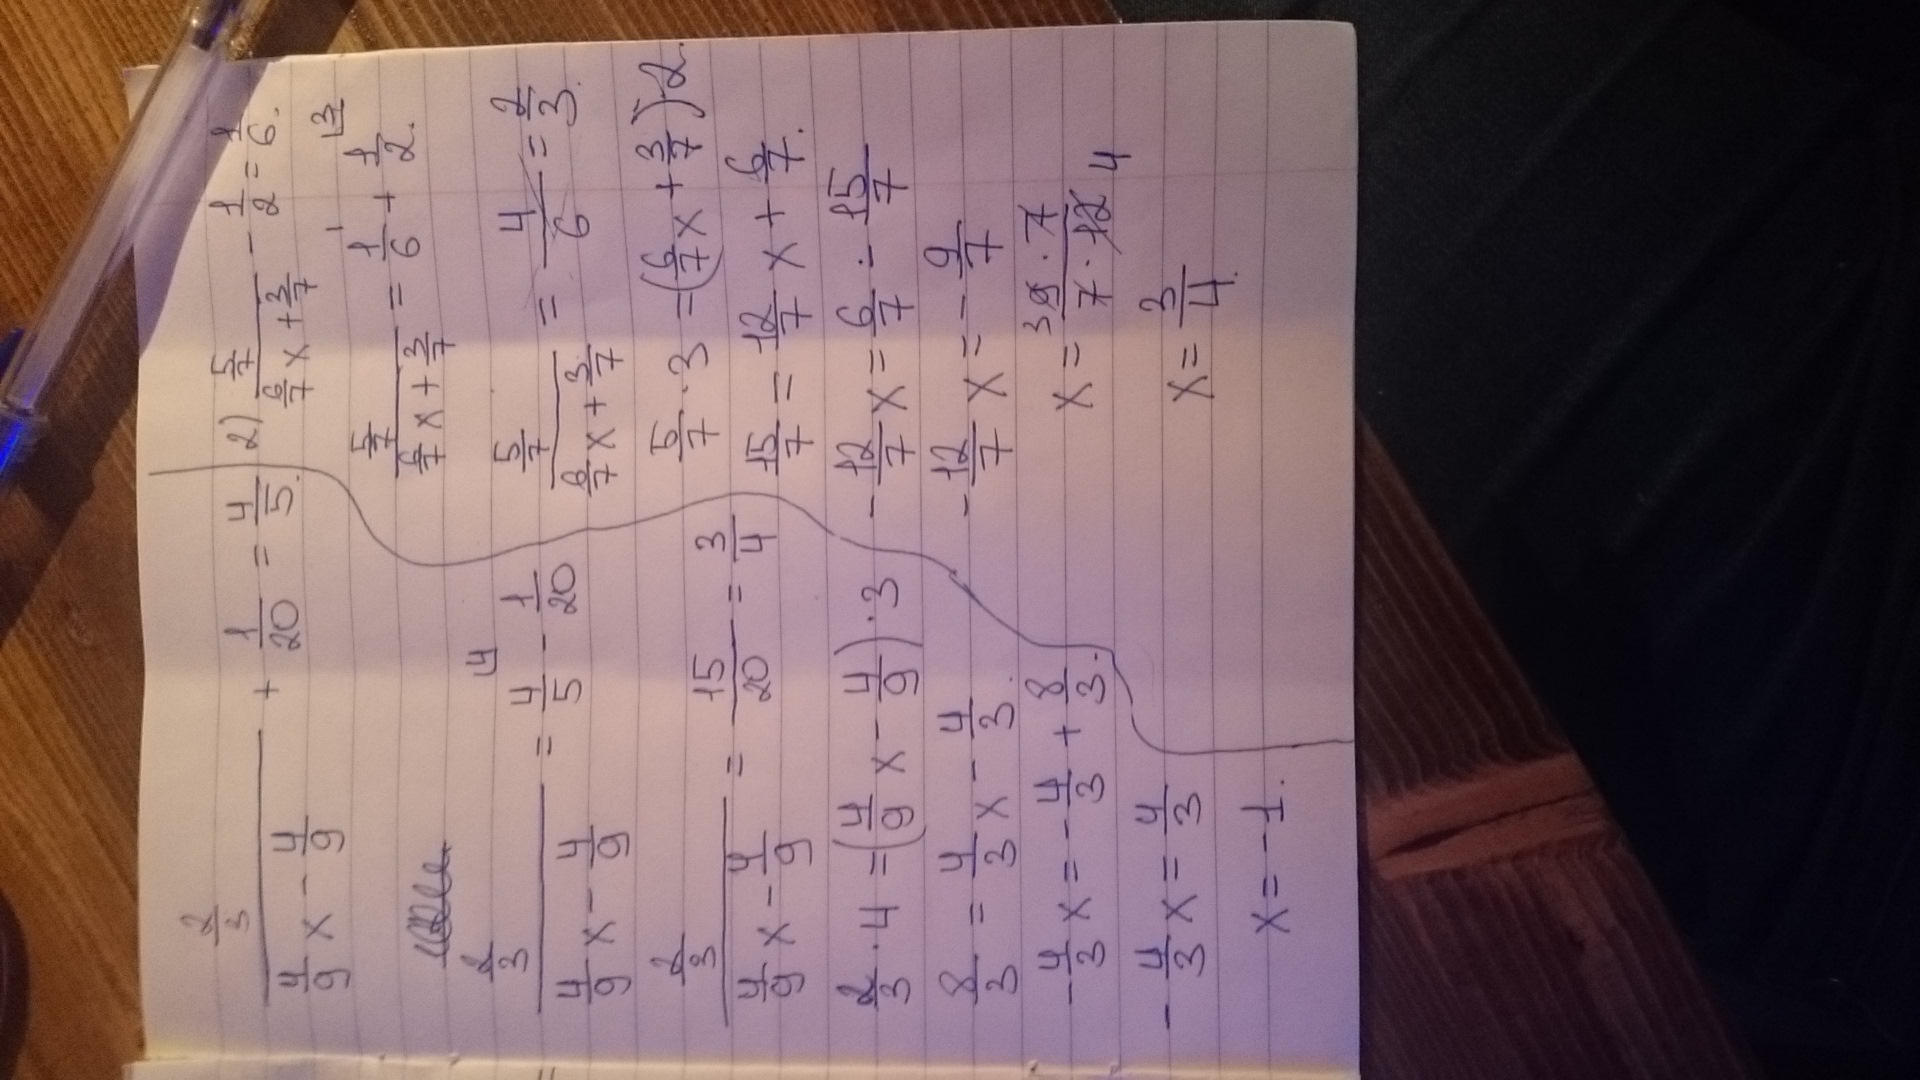 \frac{\frac{2}{3}}{\frac{4}{9}x - \frac{4}{9}} + \frac{1}{20} = \frac{4}{5}.
\frac{\frac{2}{3}}{\frac{4}{9}x - \frac{4}{9}} = \frac{4}{5}^{4} - \frac{1}{20}
\frac{\frac{2}{3}}{\frac{4}{9}x - \frac{4}{9}} = \frac{15}{20} = \frac{3}{4}
\frac{2}{3} \cdot 4 = (\frac{4}{9}x - \frac{4}{9}) \cdot 3
\frac{8}{3} = \frac{4}{3}x - \frac{4}{3}.
-\frac{4}{3}x = -\frac{4}{3} + \frac{8}{3}.
-\frac{4}{3}x = \frac{4}{3}
x = -1.
2) \frac{\frac{5}{7}}{\frac{6}{7}x + \frac{3}{7}} - \frac{1}{2} = \frac{1}{6}.
\frac{\frac{5}{7}}{\frac{6}{7}x + \frac{3}{7}} = \frac{1}{6}^{1} + \frac{1}{2}^{3}.
\frac{\frac{5}{7}}{\frac{6}{7}x + \frac{3}{7}} = \frac{4}{6} = \frac{2}{3}.
\frac{5}{7} \cdot 3 = (\frac{6}{7}x + \frac{3}{7}) 2.
\frac{15}{7} = \frac{12}{7}x + \frac{6}{7}.
-\frac{12}{7}x = \frac{6}{7} - \frac{15}{7}
-\frac{12}{7}x = -\frac{9}{7}
x = \frac{3 9 \cdot 7}{7 \cdot 12 4}
x = \frac{3}{4}.